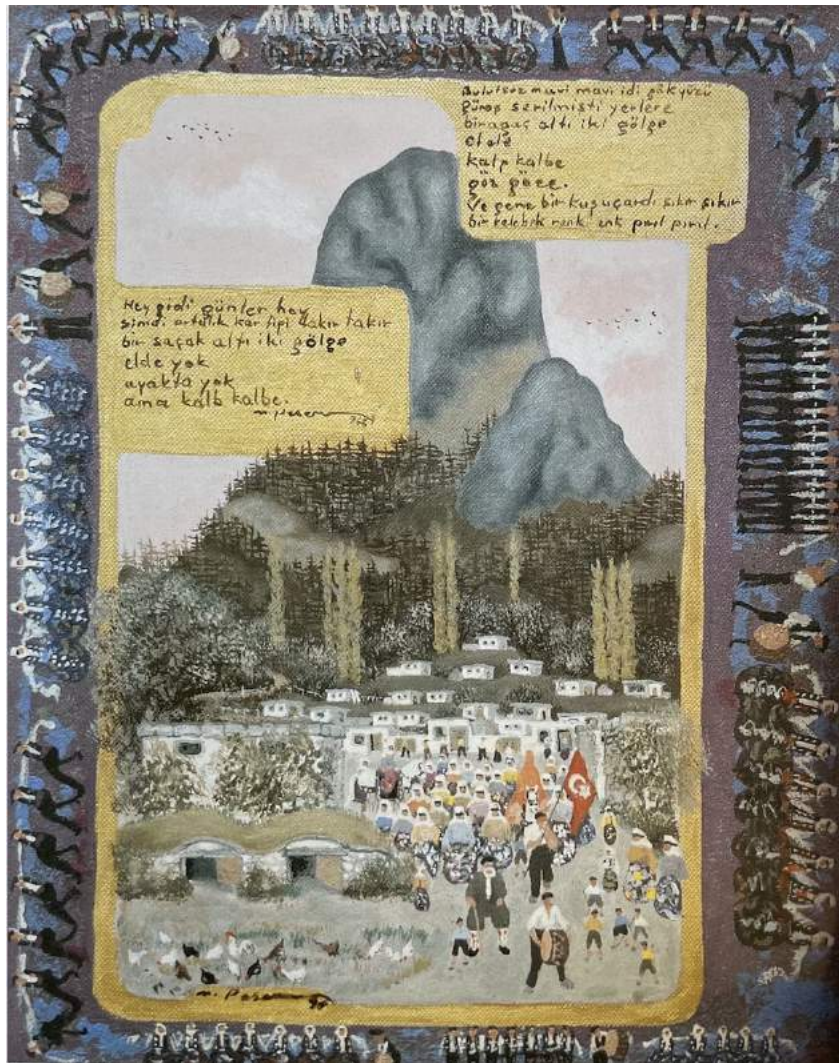 Bulutsuz mavi mavi idi gökyüzü
güneş serilmişti yerlere
bir ağaç altı iki gölge
el ele
kalp kalbe
göz göze.
Ve gene bir kuş uçardı şıkır şıkır
bir kelebek renk renk pırıl pırıl.
Hey gidi günler hey
şimdi ortalık kar tipi takır takır
bir saçak altı iki gölge
elde yok
ayakta yok
ama kalb kalbe.